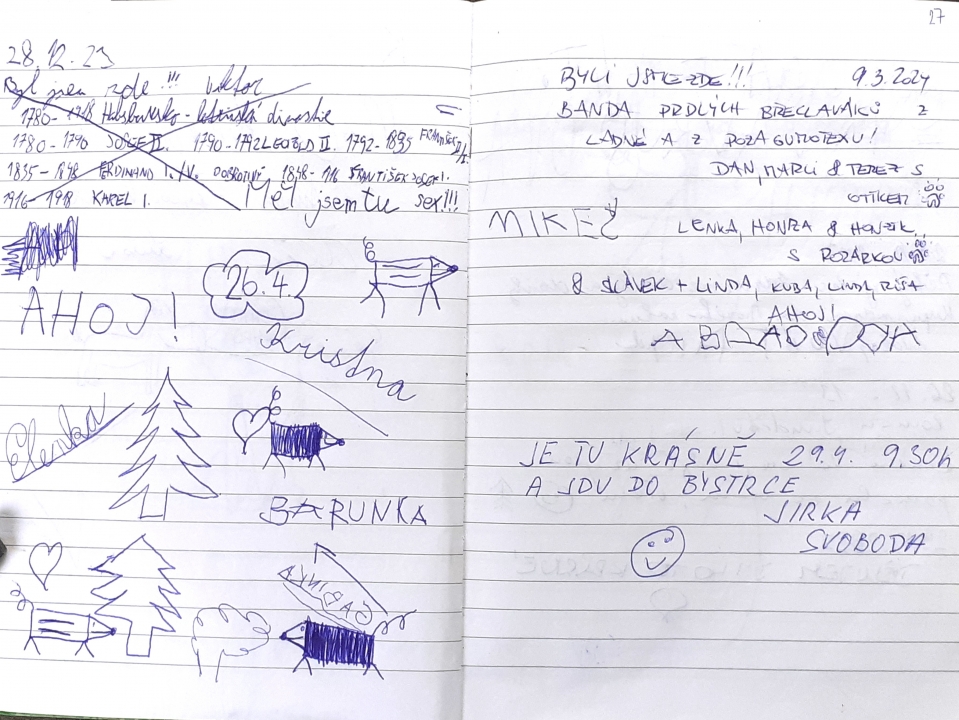 28.12.23
Byl jsem zde!!! Viktor
1780-1918 Habsbursko-lotrinská dinastie
1780-1790 JOSEF II. 1790-1792 LEOPOLD II. 1792-1835 FRANTIŠEK
1835-1848 FERDINAND I./V. DOBROTIVÝ 1848-1916 FRANTIŠEK JOSEF I.
1916-1918 KAREL I.
Měl jsem tu sex!!!
AHOJ!
26.4.
Kristna
Elenka
BARUNKA
GABINKA
27
BYLI JSME ZDE!!! 9.3.2024
BANDA PRDLÝCH BŘECLAVÁKŮ Z
LADNÉ A Z POZA GUMOTEXU!
DAN, MARCI & TEREZ S
OTÍKEM
MIKEŠ
LENKA, HONZA & HONZÍK
S ROZÁRKOU
& SLÁVEK + LINDA, KUBA, LINDA, RÍŠA
AHOJ!
JE TU KRÁSNĚ 29.4. 9.30h
A JDU DO BYSTRCE
JIRKA
SVOBODA